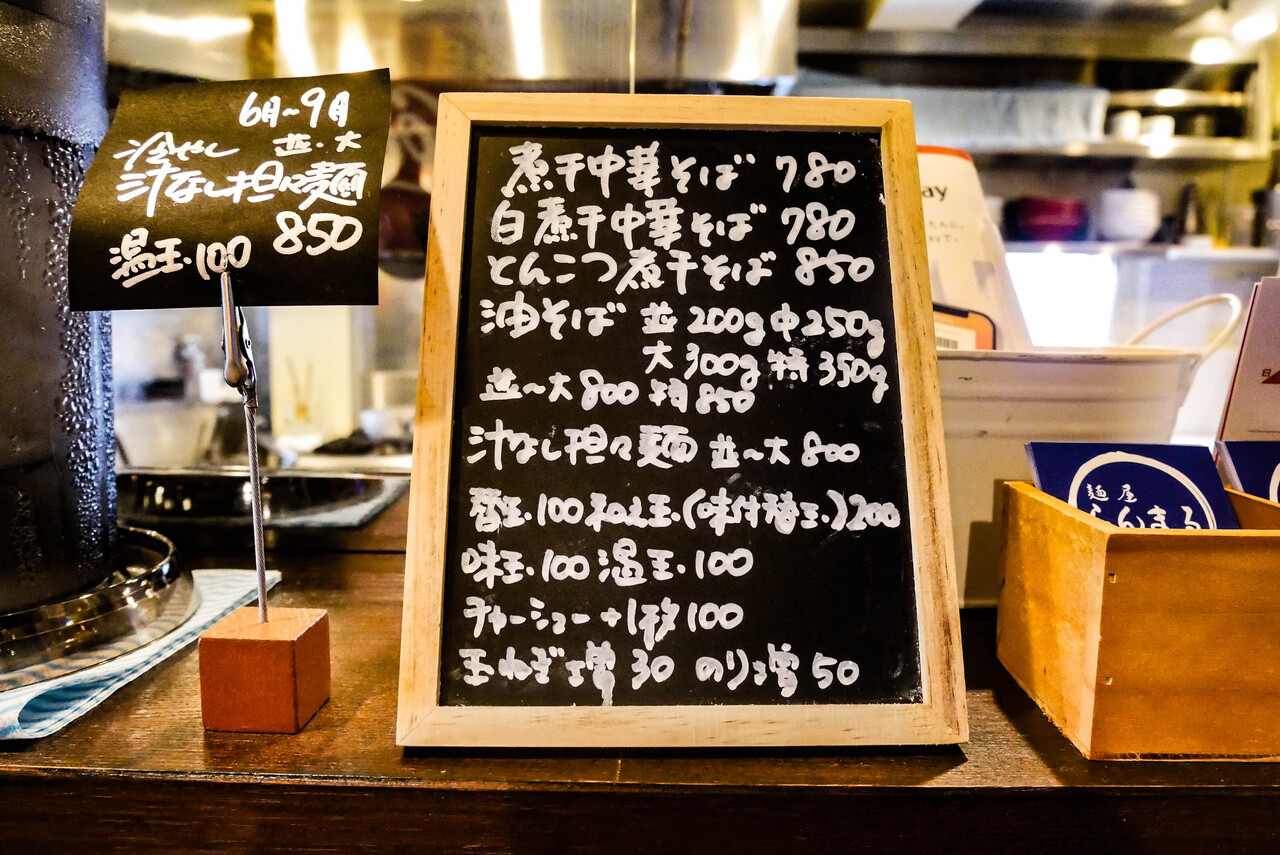 6月~9月
冷やし 並・大
汁なし担々麺
850
温玉・100
煮干中華そば 780
白煮干中華そば 780
とんこつ煮干そば 850
油そば 並200g 中250g
大300g 特350g
並~大800 特850
汁なし担々麺 並~大800
替玉・100 和え玉(味付替玉)200
味玉・100 温玉・100
チャーシュー+1枚100
玉ねぎ増 30 のり増 50
ay
麺屋